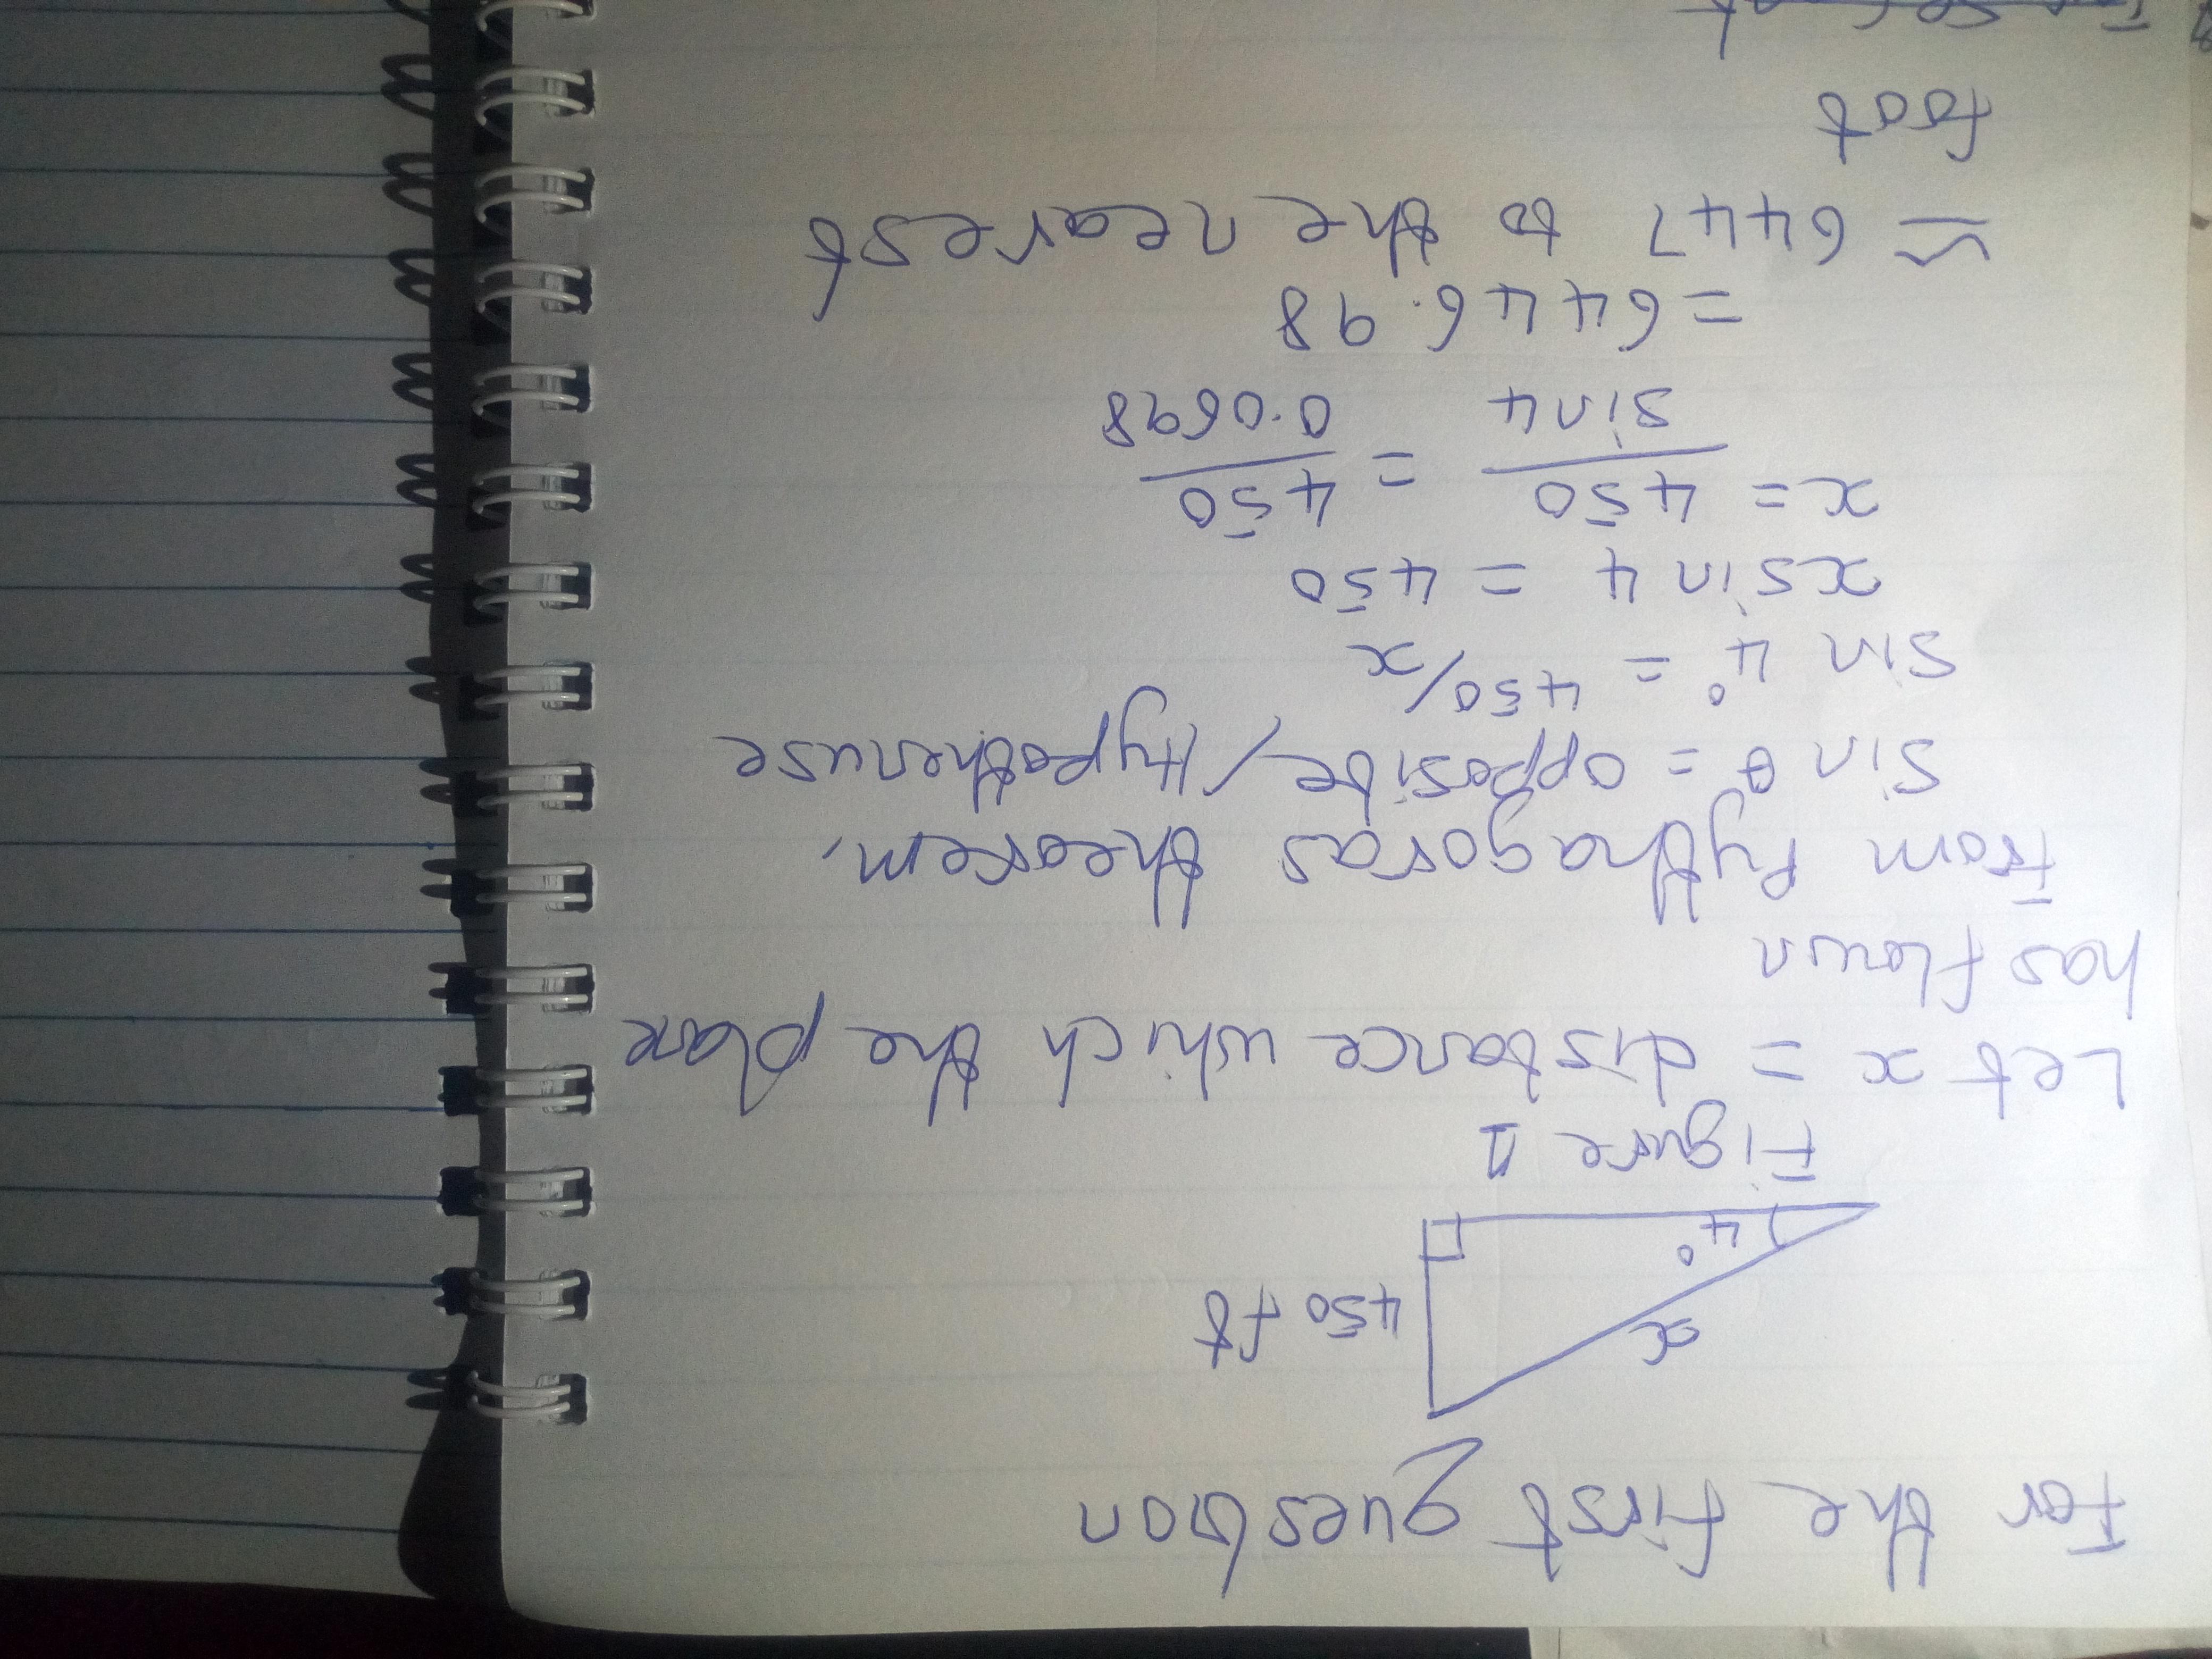 For the first question
x
450 ft
4°
Figure 1
Let x = distance which the plane
has flown
From Pythagoras theorem,
Sin θ = opposite/Hypothenuse
Sin 4° = 450/x
xsin 4 = 450
x = 450/sin4 = 450/0.0698
= 6446.98
≈ 6447 to the nearest
foot